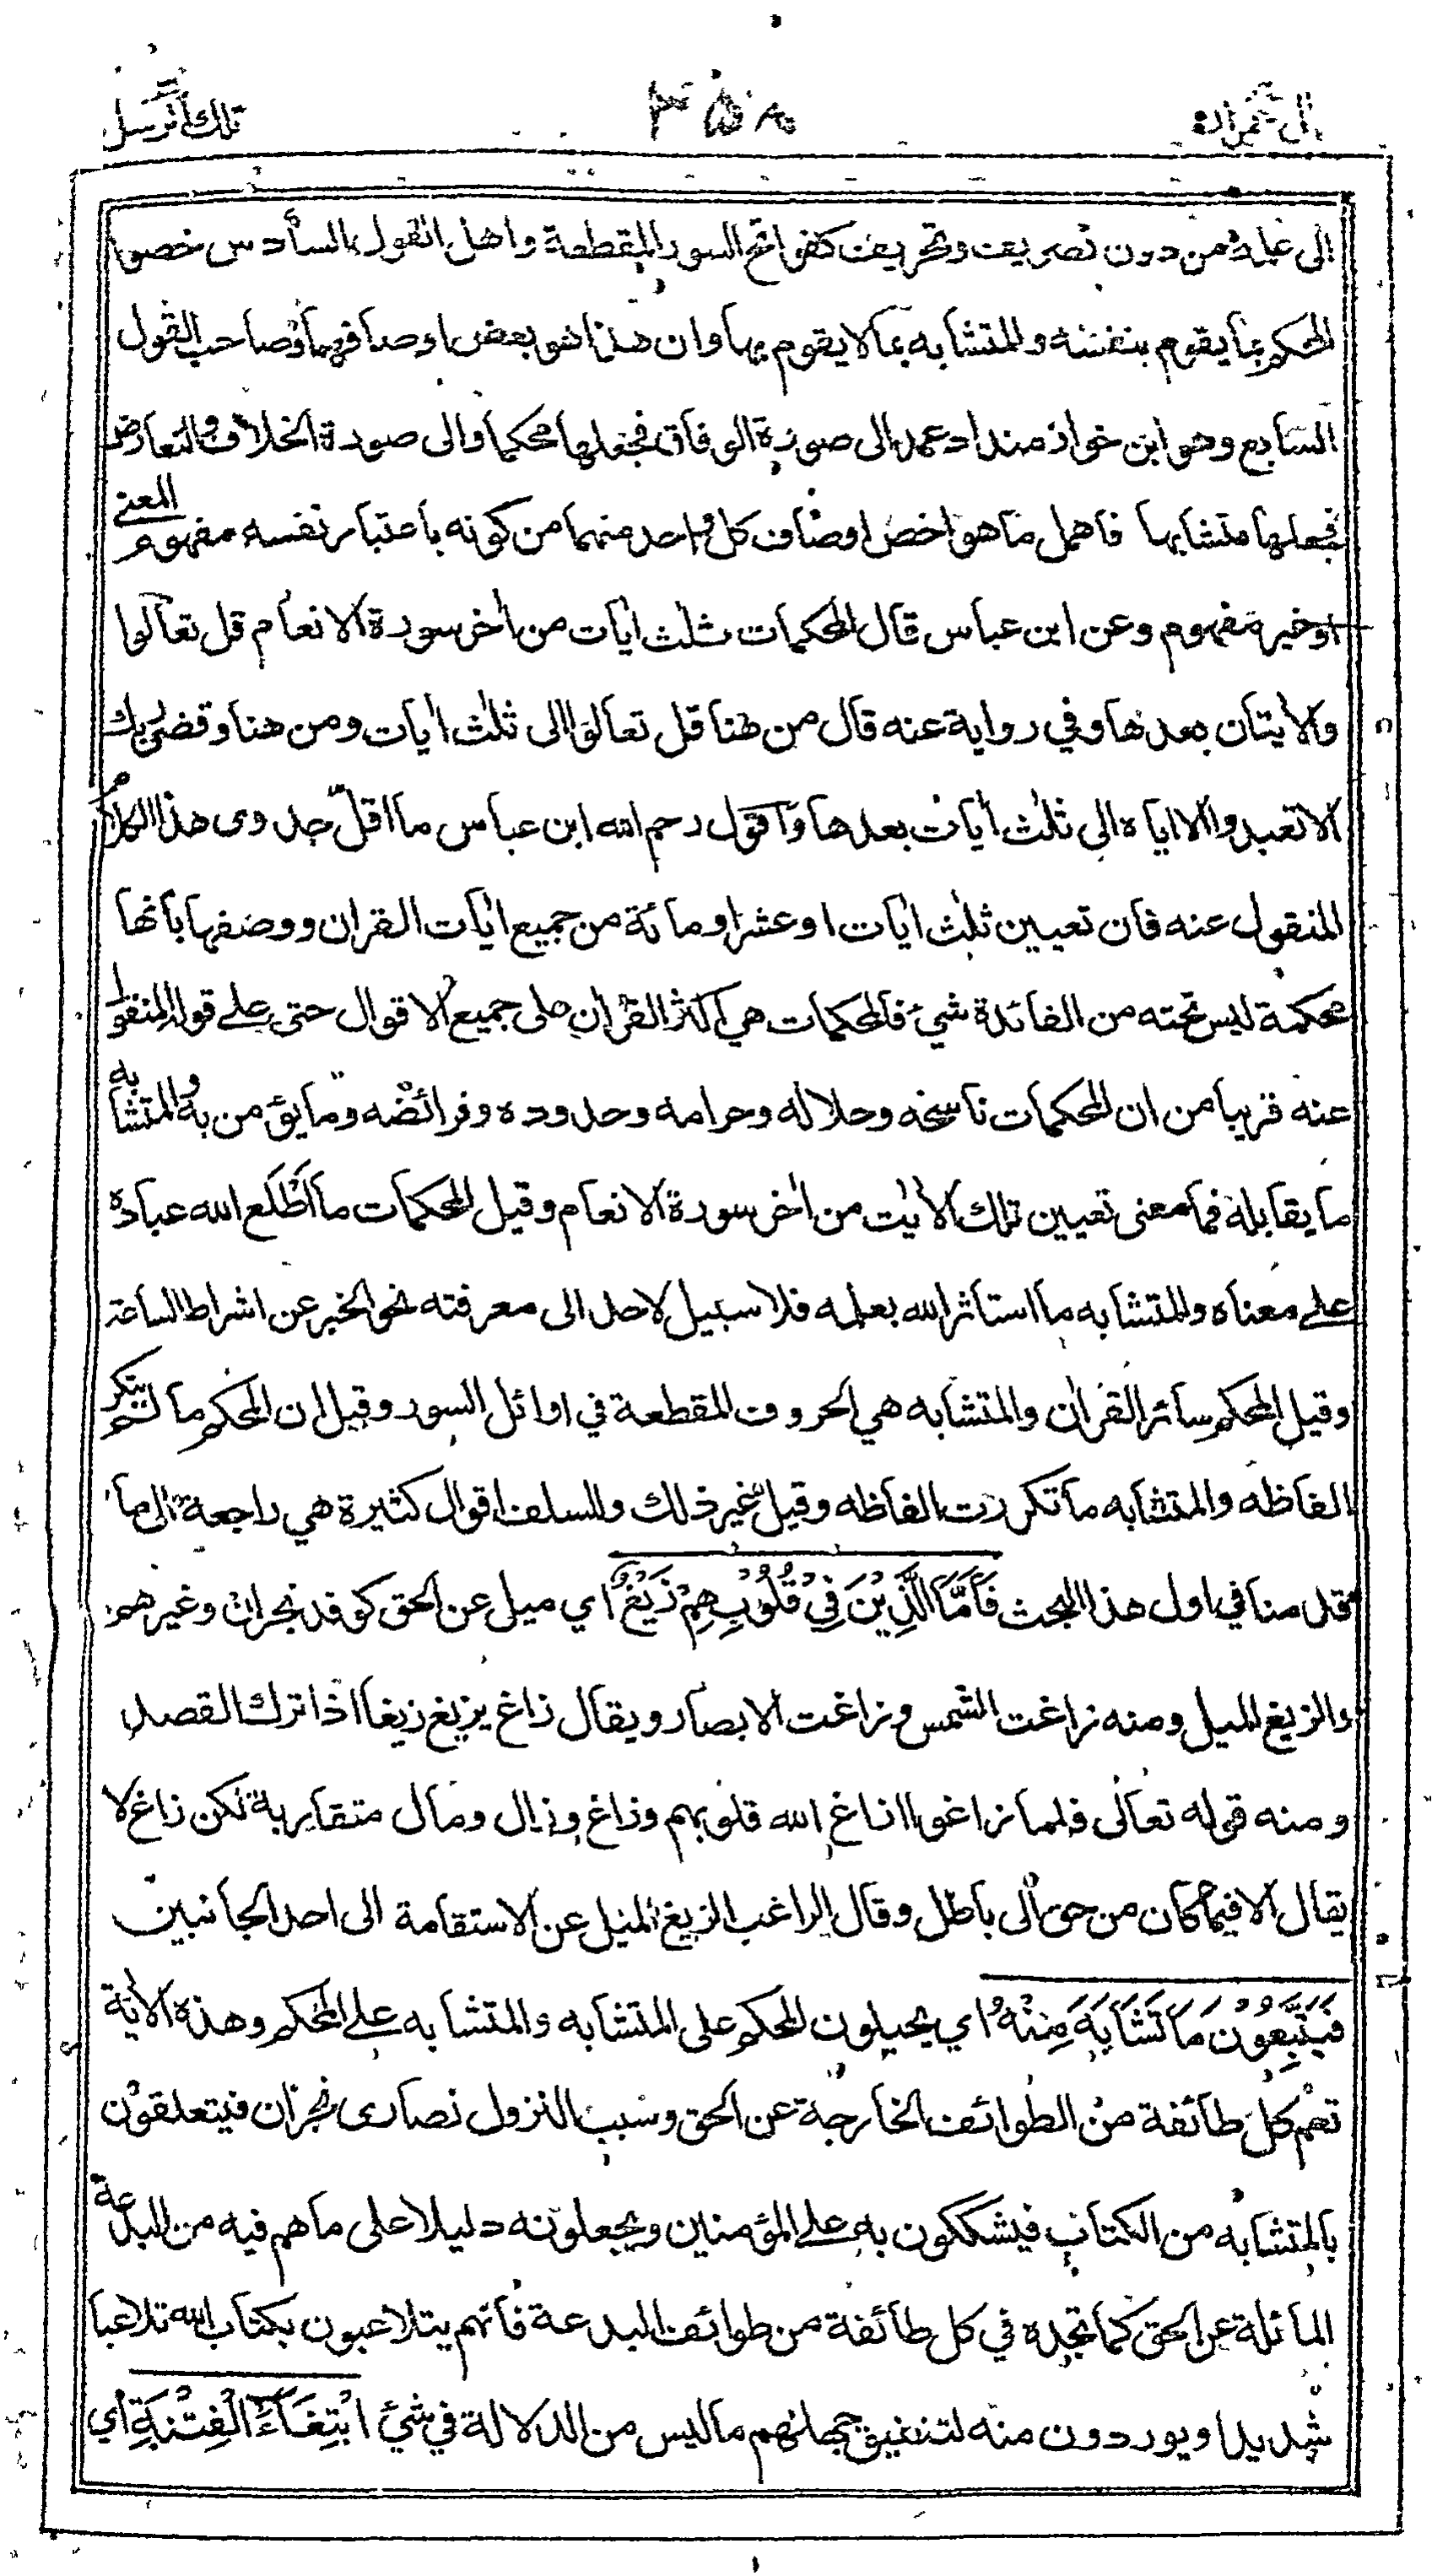 تلك الرسل ٣٥٨ ال عمران ٣
الى علمه من دون تصريف وتحريف كفواتح السور المقطعة واهل القول السادس خصوا
المحكم بما يقوم بنفسه والمتشابه بما لا يقوم بها وان هذا هو بعض اوصافهما وصاحب القول
السابع وهو ابن خواز منداد عمد الى صورة الوفاق فجعلها محكما والى صورة الخلاف والتعارض
فجعلها متشابها فاهمل ما هو اخص اوصاف كل واحد منهما من كونه باعتبار نفسه مفهوم المعنى
او غير مفهوم وعن ابن عباس قال المحكمات ثلث ايات من اخر سورة الانعام قل تعالوا
والايتان بعدها وفي رواية عنه قال من ههنا قل تعالوا الى ثلث ايات ومن هنا وقضى ربك
الا تعبدوا الا اياه الى ثلث ايات بعدها واقول رحم الله ابن عباس ما اقل جدوى هذا الكلام
المنقول عنه فان تعيين ثلث ايات او عشر او مائة من جميع ايات القران ووصفها بانها
محكمة ليس تحته من الفائدة شيء فالمحكمات هي اكثر القران على جميع الاقوال حتى على قوله المنقول
عنه قريبا من ان المحكمات ناسخه وحلاله وحرامه وحدوده وفرائضه وما يؤمن به والمتشابه
ما يقابله فما معنى تعيين تلك الايت من اخر سورة الانعام وقيل المحكمات ما اطلع الله عباده
على معناه والمتشابه ما استاثر الله بعلمه فلا سبيل لاحد الى معرفته نحو الخبر عن اشراط الساعة
وقيل المحكم سائر القران والمتشابه هي الحروف المقطعة في اوائل السور وقيل ان المحكم ما لم يتكرر
الفاظه والمتشابه ما تكررت الفاظه وقيل غير ذلك وللسلف اقوال كثيرة هي راجعة الى ما
قدمنا في اول هذا البحث فَاَمَّا الَّذِيْنَ فِيْ قُلُوْبِهِمْ زَيْغٌ اي ميل عن الحق كوفد نجران وغيرهم
والزيغ الميل ومنه زاغت الشمس وزاغت الابصار ويقال زاغ يزيغ زيغا اذا ترك القصد
ومنه قوله تعالى فلما زاغوا ازاغ الله قلوبهم وزاغ وزال ومال متقاربة لكن زاغ لا
يقال الا فيما كان من حق الى باطل وقال الراغب الزيغ الميل عن الاستقامة الى احد الجانبين
فَيَتَّبِعُوْنَ مَا تَشَابَهَ مِنْهُ اي يحيلون المحكم على المتشابه والمتشابه على المحكم وهذه الاية
تعم كل طائفة من الطوائف الخارجة عن الحق وسبب النزول نصارى نجران فيتعلقون
بالمتشابه من الكتاب فيشككون به على المؤمنين ويجعلونه دليلا على ما هم فيه من البدعة
المائلة عن الحق كما تجده في كل طائفة من طوائف البدعة فانهم يتلاعبون بكتاب الله تلاعبا
شديدا ويوردون منه لتنفيق جهلهم ما ليس من الدلالة في شيء ابْتِغَآءَ الْفِتْنَةِ اي